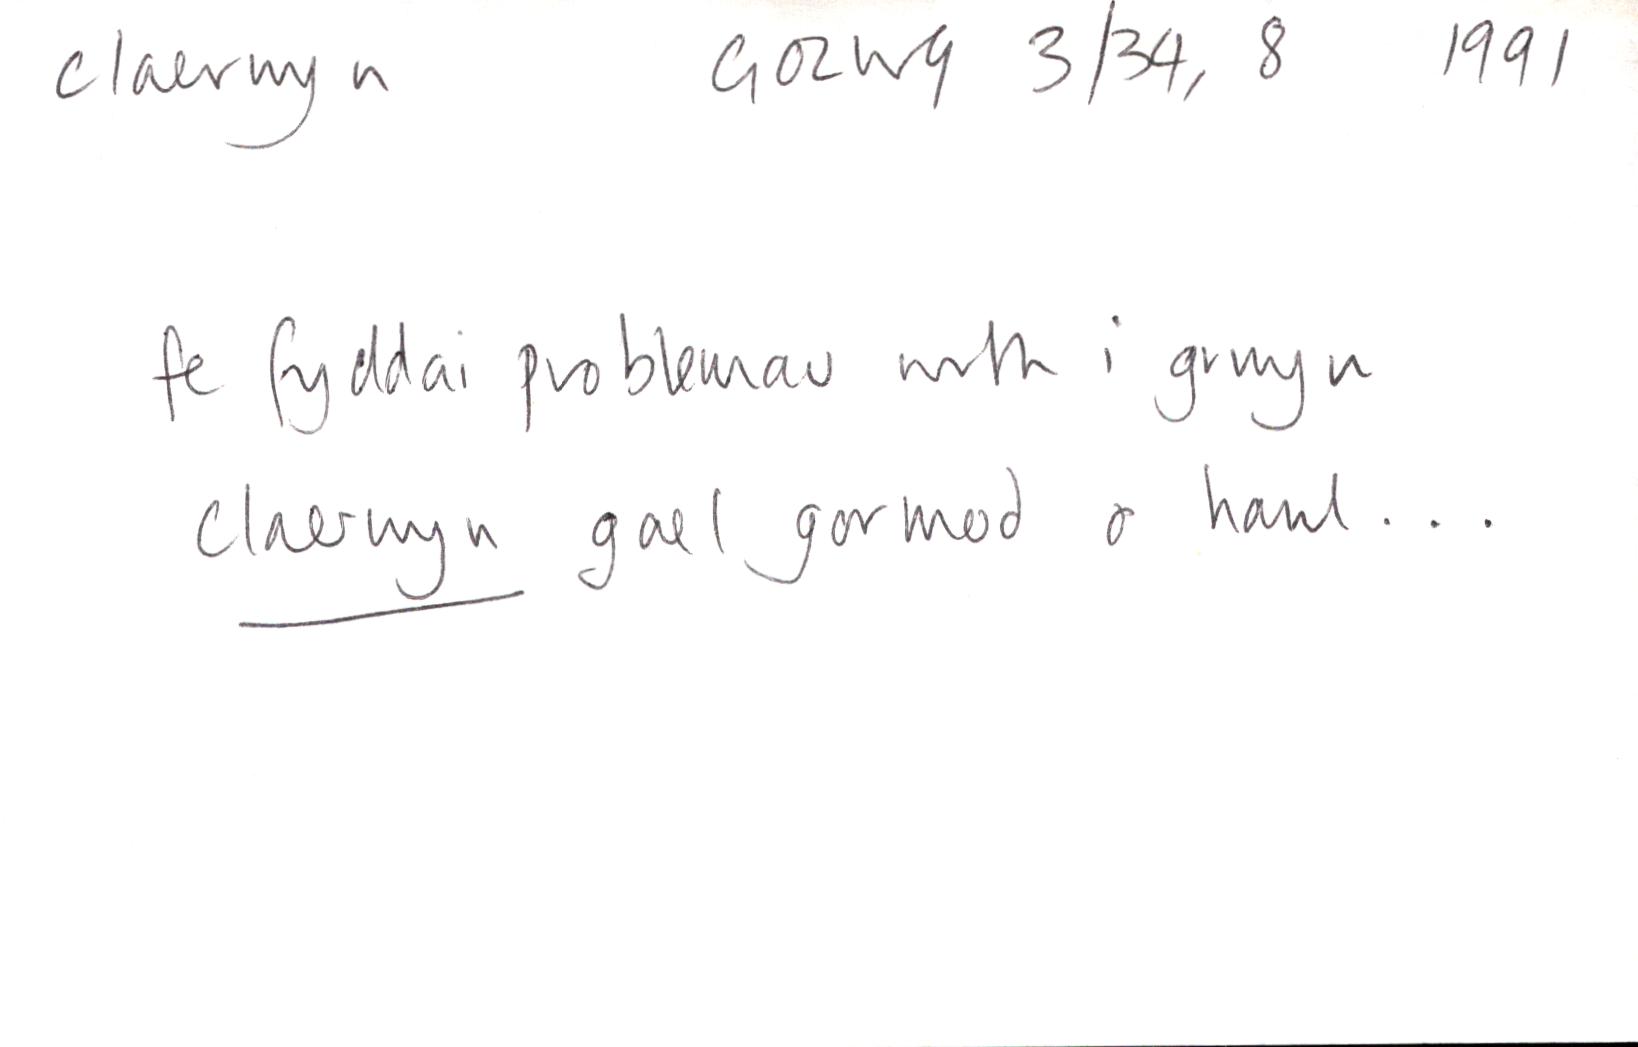 claerwyn GOLWG 3/34, 8 1991
fe fyddai problemau wrth i grwyn
claerwyn gael gormod o haul...